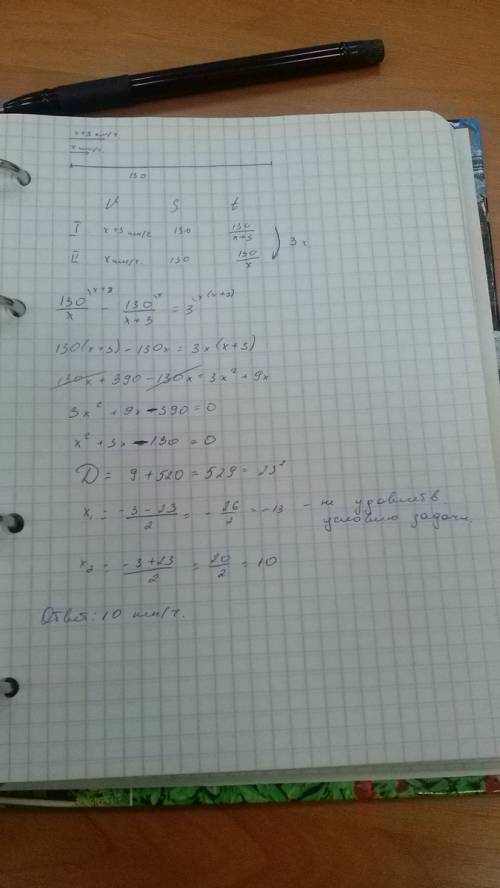 x+3 км/ч
x км/ч.
130
V S t
I x+3 км/ч 130 130/(x+3)
3 ч.
II x км/ч. 130 130/x
130/x \x+3 - 130/(x+3) \x = 3 \x(x+3)
130(x+3) - 130x = 3x(x+3)
130x + 390 - 130x = 3x² + 9x
3x² + 9x - 390 = 0
x² + 3x - 130 = 0
D = 9 + 520 = 529 = 23²
x₁ = (-3-23)/2 = -26/2 = -13 - не удовлетв.
условию задачи.
x₂ = (-3+23)/2 = 20/2 = 10
Ответ: 10 км/ч.